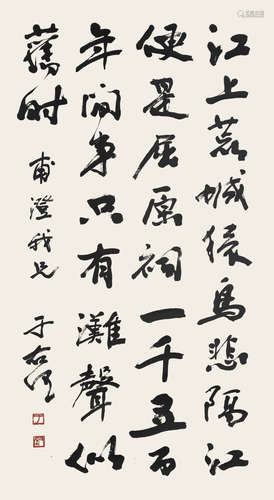 江上荒城猿鸟悲隔江
便是屈原祠一千五百
年间事只有滩聲似
舊时
甫澄我兄
于右任